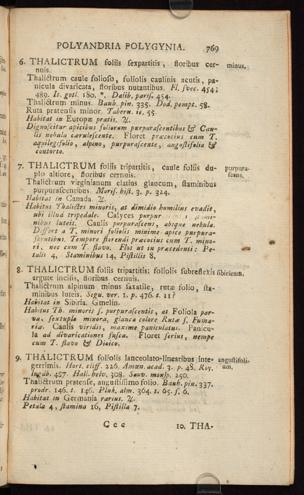 POLYANDRIA POLYGYNIA. 769
6. THALICTRUM foliis sexpartitis, floribus cer- minus.
nuis.
Thalictrum caule folioso, foliolis caulinis acutis, pa-
nicula divaricata, floribus nutantibus. Fl. svec. 454;
489. It. gotl. 180. *. Dalib. paris. 454.
Thalictrum minus. Bauh. pin. 335. Dod. pempt. 58.
Ruta pratensis minor. Tabern. ic. 55.
Habitat in Europæ pratis. ♃.
Dignoscitur apicibus foliorum purpurascentibus & Cau-
lis nebula cærulescente. Floret præcocius cum T.
aquilegifolio, alpino, purpurascente, angustifolio &
contorto.
7. THALICTRUM foliis tripartitis, caule foliis du- purpura-
plo altiore, floribus cernuis. scens.
Thalictrum virginianum elatius glaucum, staminibus
purpurascentibus. Moris. hist. 3. p. 324.
Habitat in Canada. ♃.
Habitus Thalictri minoris, at dimidio humilius evadit,
ubi illud tripedale. Calyces purpur
nibus luteis. Caulis purpurascens, absque nebula.
Differt a T. minori foliolis minime apice purpura-
scentibus. Tempore florendi præcocius cum T. mino-
ri, nec cum T. flavo. Flos ut in præcedenti: Pe-
talis 4, Staminibus 14, Pistillis 8.
8. THALICTRUM foliis tripartitis; foliolis subreflexis sibiricum.
argute incisis, floribus cernuis.
Thalictrum alpinum minus saxatile, rutæ folio, sta-
minibus luteis. Segu. ver. 1. p. 476. t. 11?
Habitat in Sibiria. Gmelin.
Habitus Th. minoris s. purpurascentis, at Foliola par-
va, sextuplo minora, glauca colore Rutæ s. Fuma-
riæ. Caulis viridis, maxime paniculatus. Panicu-
la ad divaricationes fusca. Floret serius, nempe
cum T. flavo & Dioico.
9. THALICTRUM foliolis lanceolato-linearibus inte- angustifoli-
gerrimis. Hort. cliff. 226. Amœn. acad. 3. p. 48. Roy. um.
lugdb. 487. Hall. helv. 308. Sauv. monsp. 250.
Thalictrum pratense, angustissimo folio. Bauh. pin. 337.
prodr. 146. t. 146. Pluk. alm. 364. t. 65. f. 6.
Habitat in Germania rarius. ♃.
Petala 4, stamina 16, Pistilla 7.
Ccc 10. THA-